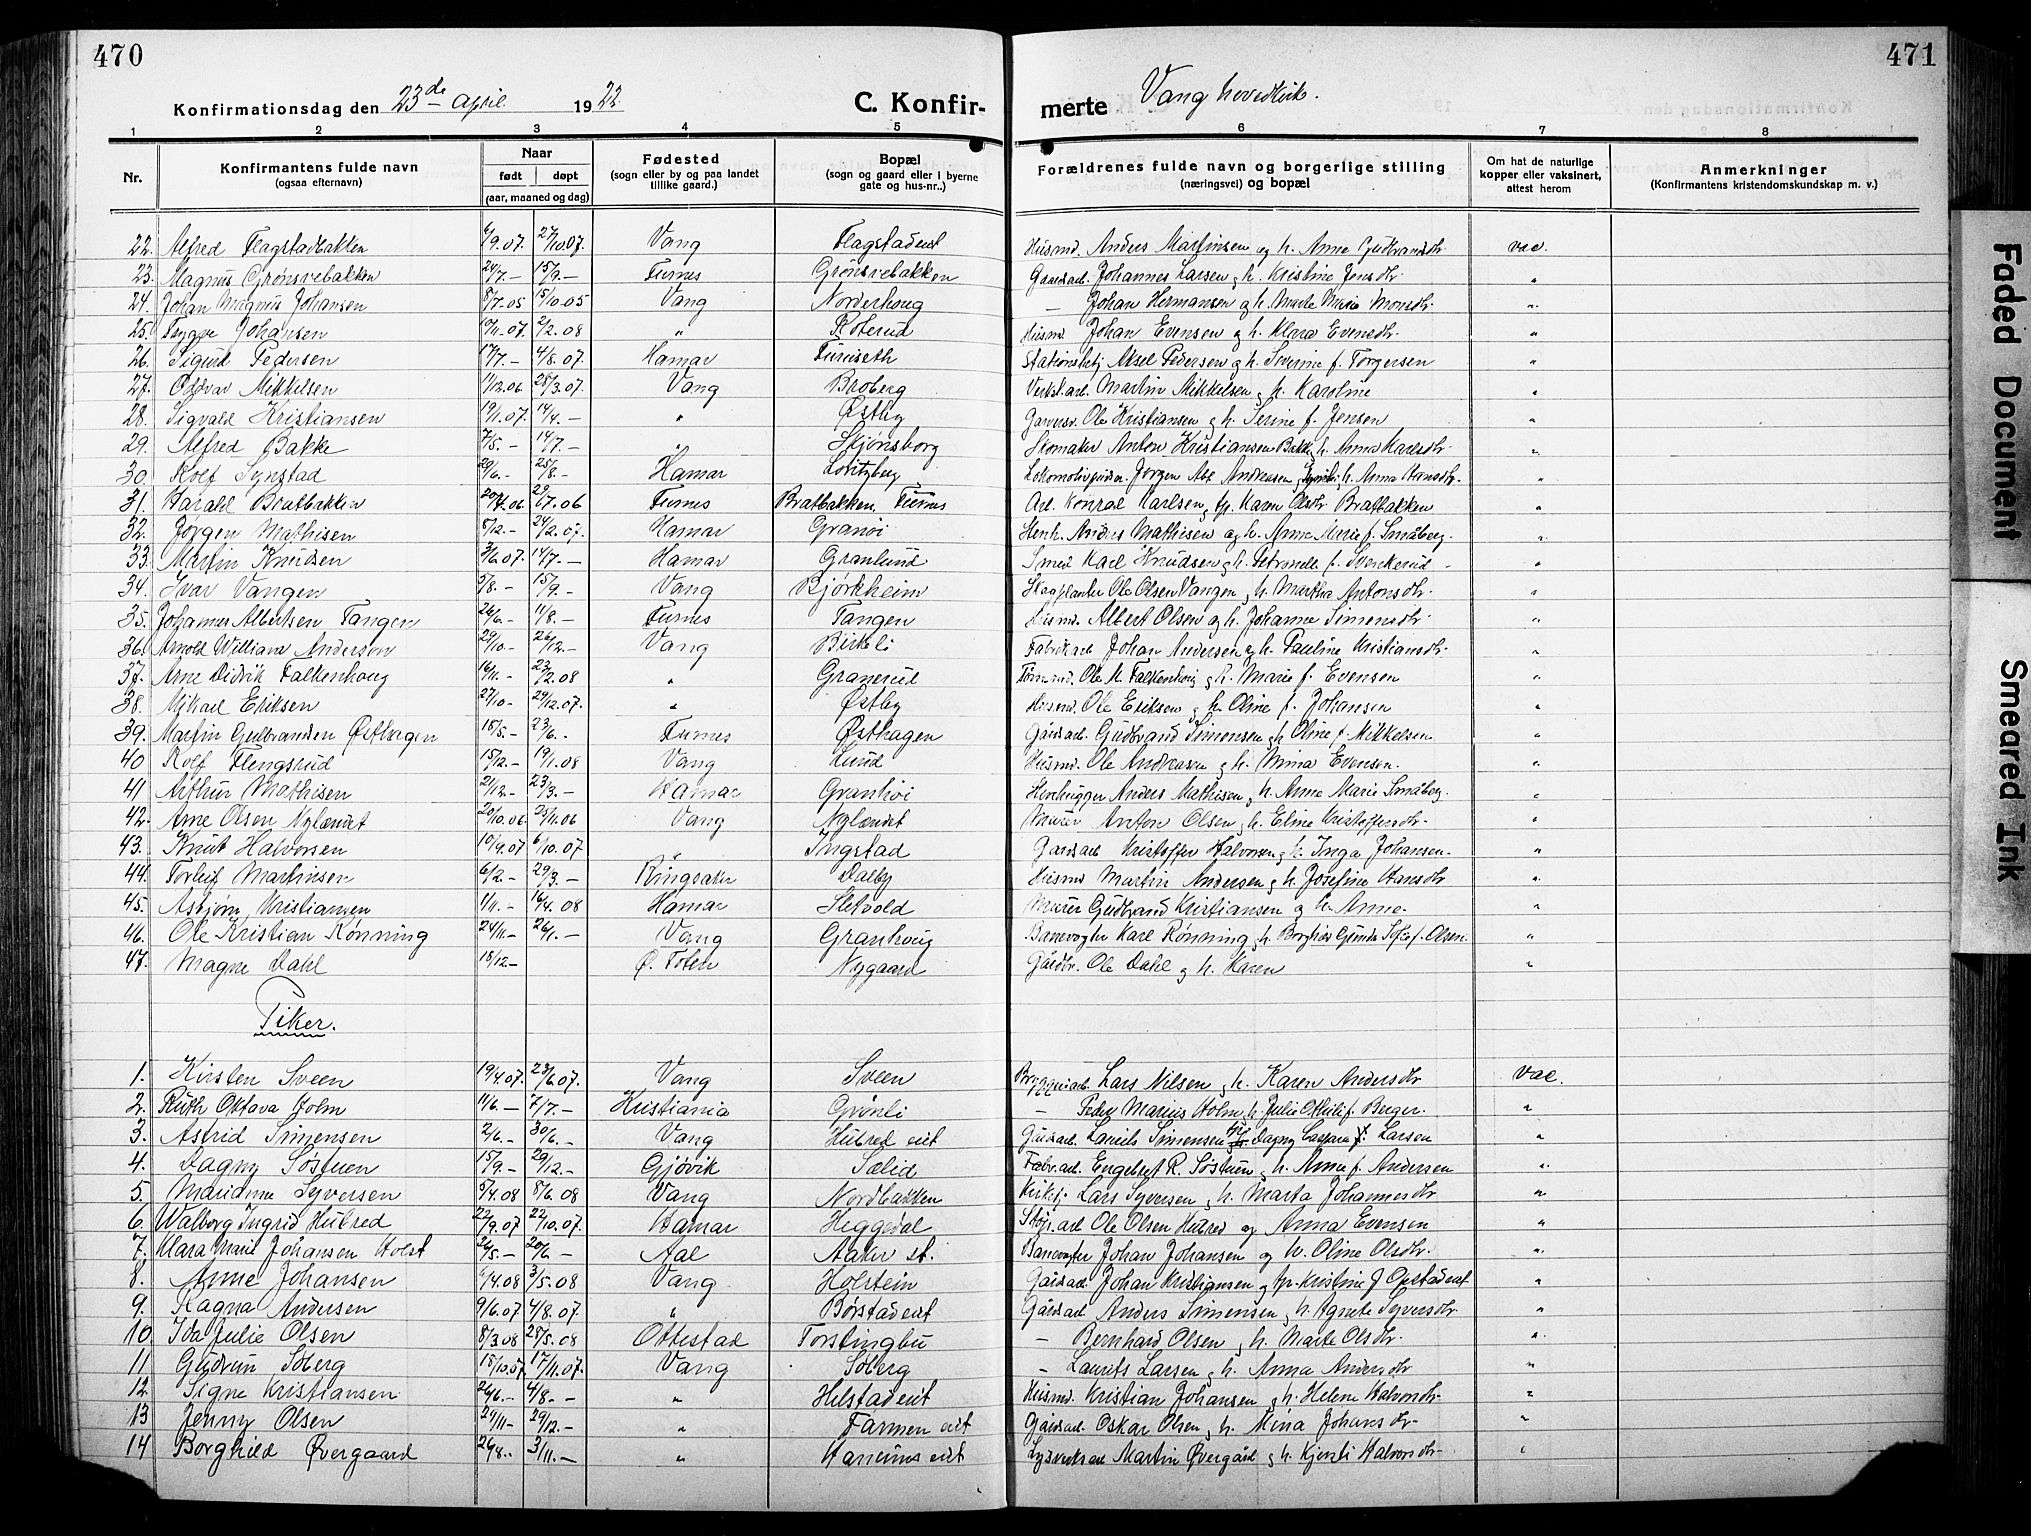 470
Konfirmationsdag den 23de april 1922.
C. Konfir-
1 2 3 4 5
Nr. Konfirmantens fulde navn (ogsaa efternavn) Naar født døpt (aar, maaned og dag) Fødested (sogn eller by og paa landet tillike gaard.) Bopæl (sogn og gaard eller i byerne gate og hus-nr.,)
471
merte Vang hovedkirk.
6 7 8
Forældrenes fulde navn og borgerlige stilling (næringsvei) og bopæl Om hat de naturlige kopper eller vaksinert, attest herom Anmerkninger (Konfirmantens kristendomskundskap m. v.)
22. Alfred Flagstadbakken 6/9.07. 27/10.07. Vang Flagstadeiet Husmd. Anders Martinsen og h. Anne Gudbrandsdtr. vac.
23. Magnus Grønsvebakken 24/7.- 15/9.- Furnes Grønsvebakken Gaardsarb. Johannes Larsen og h. Kristine Jensdtr. "
24. Johan Magnus Johansen 8/7.05 15/10.05 Vang Norderhoug — Johan Hermansen og h. Marte Marie Monsdtr. "
25. Trygve Johansen 19/11.07. 2/2.08 " Roterud Husmd. Johan Evensen og h. Klara Evensdtr. "
26. Sigurd Pedersen 17/7.- 4/8.07. Hamar Furuseth Stationsbetj. Aksel Pedersen og h. Severine f. Torgersen "
27. Oddvar Mikkelsen 11/12.06 28/3.07. Vang Broberg Verkst.arb. Martin Mikkelsen og h. Karoline "
28. Sigvald Kristiansen 19/1.07. 14/4.- " Østby Garversv. Ole Kristiansen og h. Serine f. Jensen "
29. Alfred Bakke 7/5.- 14/7.- " Skjønsborg Skomaker Anton Kristiansen Bakke og h. Anna Karlsdtr. "
30. Rolf Synstad 29/6.- 25/8.- Hamar Lovitzberg Lokomotivpudser Jørgen Alb. Andreasen Synstad og h. Anna Hansdtr. "
31. Harald Bratbakken 20/4.06 29/7.06 Furnes Bratbakken, Furnes Arb. Konrad Karlsen og hp. Karen Olsdtr. Bratbakken "
32. Jørgen Mathisen 5/2.- 24/2.07. Hamar Granhøi Stenh. Anders Mathisen og h. Anne Marie f. Småberg. "
33. Martin Knudsen 3/6.07. 14/7.- Hamar Granlund Smed Karl Knudsen og h. Petronelle f. Svenkerud "
34. Ivar Vangen 5/8.- 15/9.- Vang Bjørkheim Skogplanter Ole Olsen Vangen og h. Martha Antonsdtr. "
35. Johannes Albertsen Tangen 26/6.- 11/8.- Furnes Tangen Husmd. Albert Olsen og h. Johanne Simensdtr. "
36. Arnold William Anderson 29/10.- 26/12.- Vang Birkeli Fabrikarb. Johan Andersen og h. Pauline Kristiansdtr. "
37. Arne Didrik Falkenhoug 16/11.- 23/2.08 " Granerud Tømmermd. Ole M. Falkenhoug og h. Marie f. Evensen "
38. Mikael Eriksen 27/10- 29/12.07. " Østby Husmd. Ole Eriksen og h. Oline f. Johansen "
39. Martin Gulbrandsen Østhagen 18/5.- 23/6.- Furnes Østhagen Gårdsarb. Gudbrand Simensen og h. Oline f. Mikkelsen "
40 Rolf Flengsrud 15/12.- 19/1.08 Vang Lund Husmd. Ole Andreasen og h. Mina Evensen. "
41 Arthur Mathisen 21/12.- 23/3.- Hamar Granhøi Stenhugger Anders Mathisen og h. Anne Marie Småberg. "
42. Arne Olsen Nylændet 20/10.06. 25/11.06 Vang Nylændet Murer Anton Olsen og h. Eline Kristoffersdtr. "
43. Knut Halvorsen 10/9.07 6/10.07 " Ingstad Gårdsarb. Kristoffer Halvorsen og h. Inga Johansen. "
44. Torleif Martinsen 6/2- 29/3.- Ringsaker Dalby Husmd. Martin Andersen og h. Josefine Hansdtr "
45. Asbjørn Kristiansen 1/11.- 16/4.08 Hamar Sletvold Murer Gudbrand Kristiansen og h. Anne. "
46. Ole Kristian Rønning 24/11- 26/1.- Vang Granhoug Banevogter Karl Rønning og h. Borghild Gunda Sofie f. Olsen. "
47. Magne Dahl 18/12- Ø. Toten Nygaard Gårdbr. Ole Dahl og h. Karen "
Piker.
1. Kirsten Sveen 19/4.07. 23/6.07. Vang Sveen Bryggeriarb. Lars Nilsen og h. Karen Andersdtr vac.
2. Ruth Oktava Holm 11/6.- 7/7.- Kristiania Grønli — Peder Marius Holm og h. Julie Othilie f. Berger. "
3. Astrid Simensen 2/6.- 30/6.- Vang Hubred eiet Gårdsarb. Laurits Simensen og Dagny Caspara f. Larsen "
4. Dagny Søstuen 15/9.- 29/12.- Gjøvik Sælid Fabr.arb. Engebret R. Søstuen og h. Anne f. Andersen "
5. Marianne Syversen 5/4.08 8/6.08 Vang Nordbakken Kirketj. Lars Syversen og h. Marta Johannesdtr "
6. Walborg Ingrid Hubred 22/9.07 22/10.07. Hamar Heggedal Støp.arb. Ole Olsen Hubred og Anna Evensen "
7. Klara Marie Johansen Holst 26/5.- 20/6.- Aal Aaker st. Banevogter Johan Johansen og h. Oline Olsdtr. "
8. Anne Johansen 6/4.08 3/5.08 Vang Holstein Gårdsarb. Johan Kristiansen og hp. Kristine J. Opstadeiet "
9. Ragna Andersen 9/6.07 4/8.07. " Børstadeiet Gårdsarb Anders Simensen og h. Agnete Syversdtr. "
10. Ida Julie Olsen 8/3.08 28/5.08 Ottestad Torstingbu — Bernhard Olsen og h. Marte Olsdtr. "
11 Gudrun Søberg 18/10.07 17/11.07. Vang Søberg — Laurits Larsen og h. Anna Andersdtr "
12. Signe Kristiansen 26/6.- 4/8.- " Hilstadeiet Husmd. Kristian Johansen og h. Helene Halvorsdtr. "
13 Jenny Olsen 27/11- 29/12.- " Farmen eiet Gårdsarb. Oskar Olsen og h. Mina Johansdtr- "
14 Borghild Øvergaard 29/8.- 3/11.- " Haneums eiet Lysverksarb Martin Øvergård og h. Kjersti Halvorsdtr- "
Faded Document
Smeared Ink